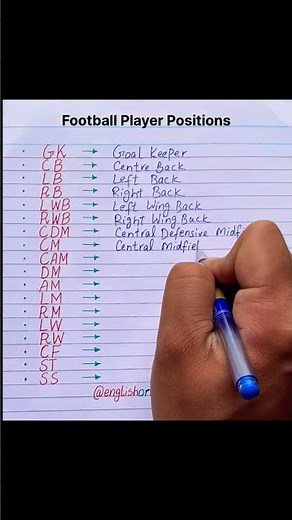 Football Player Positions
• GK → Goal Keeper
• CB → Centre Back
• LB → Left Back
• RB → Right Back
• LWB → Left Wing Back
• RWB → Right Wing Back
• CDM → Central Defensive Midf
• CM → Central Midfiel
• CAM →
• DM →
• AM →
• LM →
• RM →
• LW →
• RW →
• CF →
• ST →
• SS →
@englishor